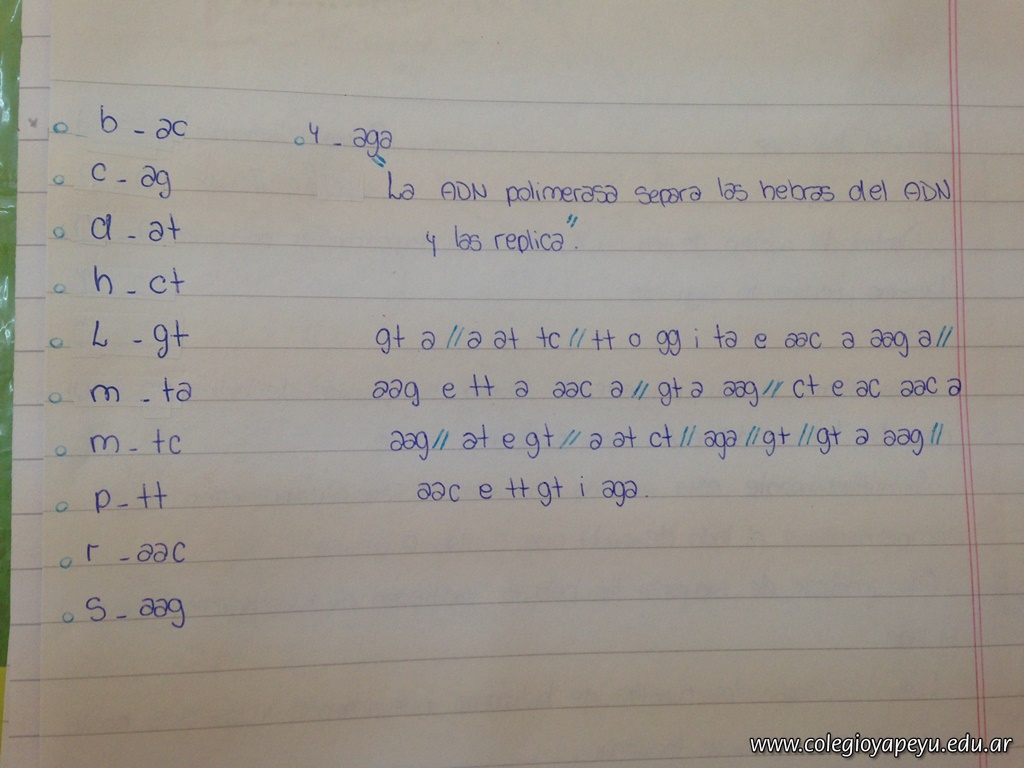 b - ac
c - ag
d - at
h - ct
L - gt
m - ta
m - tc
p - tt
r - aac
s - aag
y - aga
"La ADN polimerasa separa las hebras del ADN
y las replica".
gt a // a at tc // tt o gg i ta e aac a aag a //
aag e tt a aac a // gt a aag // ct e ac aac a
aag // at e gt // a at ct // aga // gt // gt a aag //
aac e tt gt i aga.
www.colegioyapeyu.edu.ar